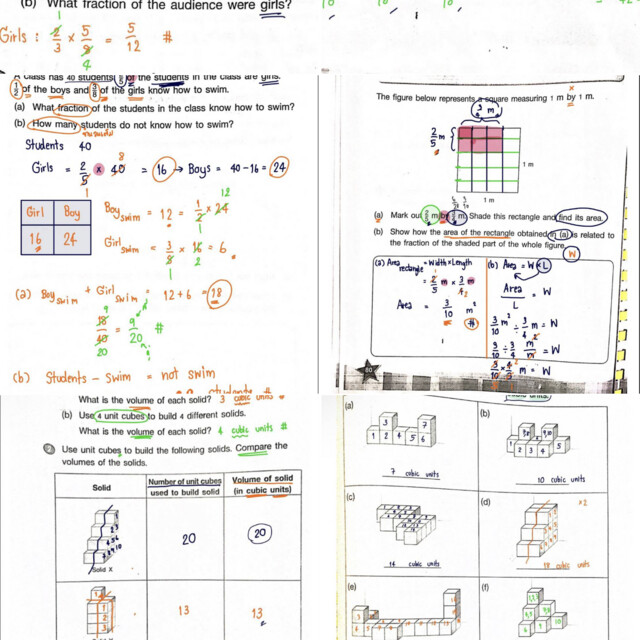 (b) What fraction of the audience were girls?
Girls : 2/3 × 5/8 = 5/12 #
1
4
A class has 40 students. 2/5 of the students in the class are girls.
1/2 of the boys and 3/8 of the girls know how to swim.
(a) What fraction of the students in the class know how to swim?
(b) How many students do not know how to swim?
Students 40
Girls = 2/5 × 40 = 16 → Boys = 40 - 16 = 24
8
1
Girl Boy
16 24
Boy swim = 12 = 1/2 × 24
12
1
Girl swim = 3/8 × 16 = 6
2
1
(a) Boy swim + Girl swim = 12 + 6 = 18
18/40 = 9/20 #
9
20
(b) Students - swim = not swim
The figure below represents a square measuring 1 m by 1 m.
3/4 m
2/5 m
1 m
1 m
(a) Mark out 2/5 m by 3/4 m. Shade this rectangle and find its area.
(b) Show how the area of the rectangle obtained in (a) is related to
the fraction of the shaded part of the whole figure.
W
(a) Area rectangle = Width × Length
= 2/5 m × 3/4 m
Area = 3/10 m² #
(b) Area = W × L
Area/L = W
3/10 m² ÷ 3/4 m = W
3/10 ÷ 3/4 m²/m = W
3/10 × 4/3 m = W
80
What is the volume of each solid? 3 cubic units #
(b) Use 4 unit cubes to build 4 different solids.
What is the volume of each solid? 4 cubic units #
Use unit cubes to build the following solids. Compare the
volumes of the solids.
Solid
Number of unit cubes used to build solid
Volume of solid (in cubic units)
Solid X
20
20
13
13
(a)
3 7
1 2 4 5 6
7 cubic units
(b)
10 cubic units
(c)
14 cubic units
(d)
×2
18 cubic units
(e)
(f)